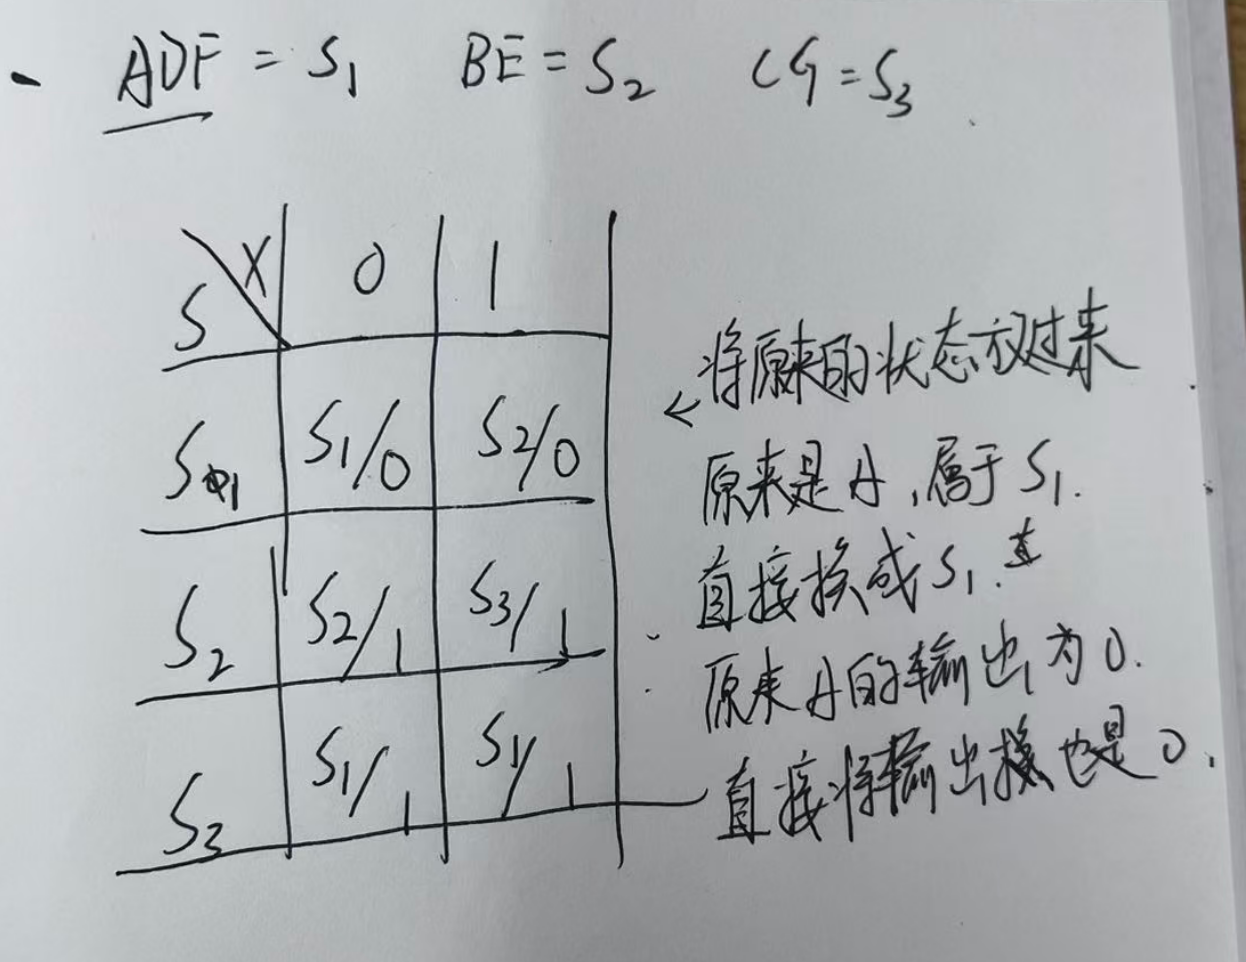 ADF = S1 BE = S2 CG = S3
X 0 1
S
S1 S1/0 S2/0
S2 S2/1 S3/1
S3 S1/1 S1/1
←将原来的状态放过来
原来是A,属于S1.
直接换成S1.
原来A的输出为0.
直接将输出换也是0.